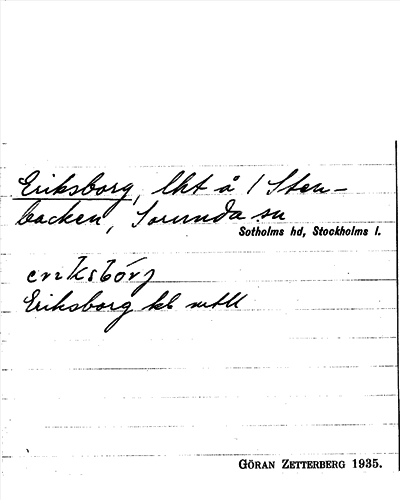 Eriksborg, lht å 1 Sten-
backen, Sorunda sn
Sotholms hd, Stockholms l.
Eriksborg kb
GÖRAN ZETTERBERG 1935.